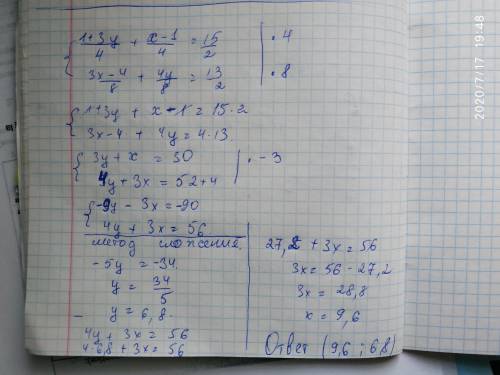 { (1+3y)/4 + (x-1)/4 = 15/2 | · 4
(3x-4)/8 + 4y/8 = 13/2 | · 8
{ 1+3y + x-1 = 15·2
3x-4 + 4y = 4·13.
{ 3y+x = 30 | · -3
4y+3x = 52+4
{ -9y - 3x = -90
4y + 3x = 56
метод сложения.
-5y = -34.
y = 34/5
y = 6,8.
4y + 3x = 56
4·6,8 + 3x = 56
27,2 + 3x = 56
3x = 56 - 27,2
3x = 28,8
x = 9,6
Ответ (9,6 ; 6,8)
2020/7/17 19:48